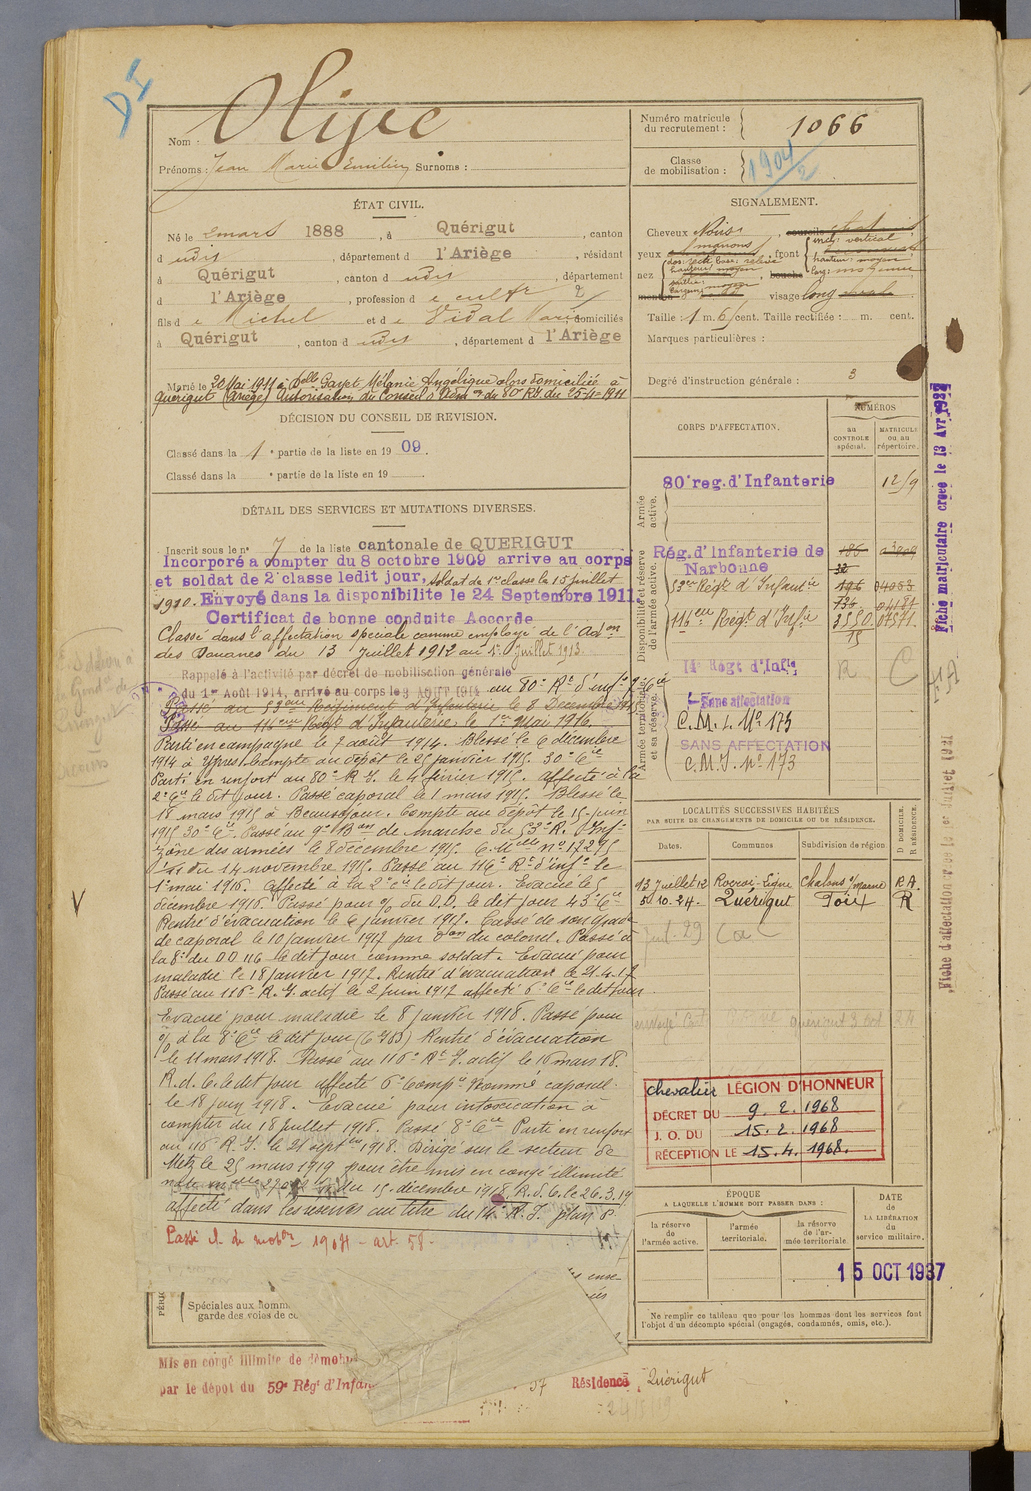 DI
Nom : Olive
Prénoms : Jean Marie Emilien Surnoms :
Numéro matricule du recrutement : 1066
Classe de mobilisation : 1904/2
ÉTAT CIVIL.
Né le 2 mars 1888, à Quérigut, canton
d udit, département d l'Ariège, résidant
à Quérigut, canton d udit, département
d l'Ariège, profession d e cultr 2
fils d e Michel et d e Vidal Marie, domiciliés
à Quérigut, canton d udit, département d l'Ariège
Marié le 20 Mai 1911 à Delle Gayet Mélanie Angélique alors domiciliée à
Quérigut (Ariège) Autorisation du Conseil d'Adm on du 80e RI du 25-4-1911
DÉCISION DU CONSEIL DE REVISION.
Classé dans la 1e partie de la liste en 1909.
Classé dans la e partie de la liste en 19
SIGNALEMENT.
Cheveux Noirs,
yeux marrons, front incl: vertical
hauteur: moyen
larg: moyenne
nez dos: recti base: relevé
hauteur: moyen
saillie:
largeur: moyen
bouche
menton visage long
Taille : 1 m. 61 cent. Taille rectifiée : m. cent.
Marques particulières :
Degré d'instruction générale : 3
CORPS D'AFFECTATION.
NUMÉROS
au CONTROLE spécial.
MATRICULE ou au répertoire.
Armée active.
80e reg. d'Infanterie
Disponibilité et réserve de l'armée active.
Rég. d'Infanterie de Narbonne
53me Régt d'Infantie
116eme Régt d'Infie
14e Régt d'Infie R C
Armée territoriale et sa réserve.
Sans affectation
C.M.I. No 173
SANS AFFECTATION
C.M.I. no 173
DÉTAIL DES SERVICES ET MUTATIONS DIVERSES.
Inscrit sous le no 7 de la liste cantonale de QUERIGUT
Incorporé a compter du 8 octobre 1909 arrive au corps
et soldat de 2e classe ledit jour, soldat de 1re classe le 15 juillet
1910. Envoyé dans la disponibilite le 24 Septembre 1911.
Certificat de bonne conduite Accorde
Classé dans l'affectation spéciale comme employé de l'Adon
des Douanes du 13 Juillet 1912 au 1er juillet 1913.
Rappelé à l'activité par décret de mobilisation générale
du 1er Août 1914, arrivé au corps le 3 AOUT 1914 au 80e Rt d'infie 7e Cie
Passé au 53eme Régiment d'Infanterie le 8 Decembre 1915
Passé au 116eme Régt d'Infanterie le 1er Mai 1916.
Parti en campagne le 7 août 1914. Blessé le 6 décembre
1914 à Ypres. Compte au dépôt le 25 janvier 1915. 30e Cie
Parti en renfort au 80e R.I. le 4 février 1915. affecté à la
2e Cie le dit jour. Passé caporal le 1 mars 1915. Blessé le
18 mars 1915 à Beauséjour. Compte au dépôt le 15 juin
1915 30e Cie. Passé au 9e Bon de marche du 53e R. d'Inf.
zône des armées le 8 décembre 1915.
du 14 novembre 1915. Passé au 116e Rt d'infie le
1er mai 1916. affecté à la 2e cie le dit jour. Evacué le 5
décembre 1916. Passé pour % du D.D. le dit jour 43e Cie
Rentré d'évacuation le 6 janvier 1917. Cassé de son grade
de caporal le 10 janvier 1917 par don du colonel. Passé à
la 8e du DD 116 le dit jour comme soldat. Evacué pour
maladie le 18 janvier 1917. Rentré d'evacuation le 21.4.17
Passé au 116e R.I. actif le 2 juin 1917 affecté 6e Cie le dit jour
Evacué pour maladie le 8 janvier 1918. Passé pour
% à la 8e Cie le dit jour. Rentré d'évacuation
le 11 mars 1918. Passé au 116e Rt I. actif le 16 mars 18.
R.d.C. le dit jour affecté 6e Compie Nommé caporal
le 18 juin 1918. Evacué pour intoxication à
compter du 18 juillet 1918. Passé 8e Cie Parti en renfort
au 116 R.I. le 21 septbre 1918. Dirigé sur le secteur de
Metz le 25 mars 1919 pour être mis en congé illimité
du 15 décembre 1918. R.d.C. le 26.3.19
affecté dans les reserves au titre du 14e R.I. plan S
Passé cl. de mobon 1904 - art. 58.
Spéciales aux homm
garde des voies de c
Mis en congé illimite de démob
par le dépot du 59e Régt d'Infan
Résidence Quérigut
LOCALITÉS SUCCESSIVES HABITÉES
PAR SUITE DE CHANGEMENTS DE DOMICILE OU DE RÉSIDENCE.
Dates. Communes Subdivision de région D DOMICILE. R RÉSIDENCE.
13 Juillet 12 Rocroi-Ligne Chalons s/Marne R A.
5.10.24. Quérigut Foix R
chevalier LÉGION D'HONNEUR
DÉCRET DU 9. 2. 1968
J. O. DU 15. 2. 1968
RÉCEPTION LE 15. 4. 1968.
ÉPOQUE
A LAQUELLE L'HOMME DOIT PASSER DANS :
la réserve de l'armée active.
l'armée territoriale.
la réserve de l'armée territoriale
DATE de LA LIBÉRATION du service militaire.
15 OCT 1937
Ne remplir ce tableau que pour les hommes dont les services font
l'objet d'un décompte spécial (engagés, condamnés, omis, etc.).
Fiche matriculaire creee le 13 Avr 1932
Fiche d'affectation creee le 1er Juillet 1921